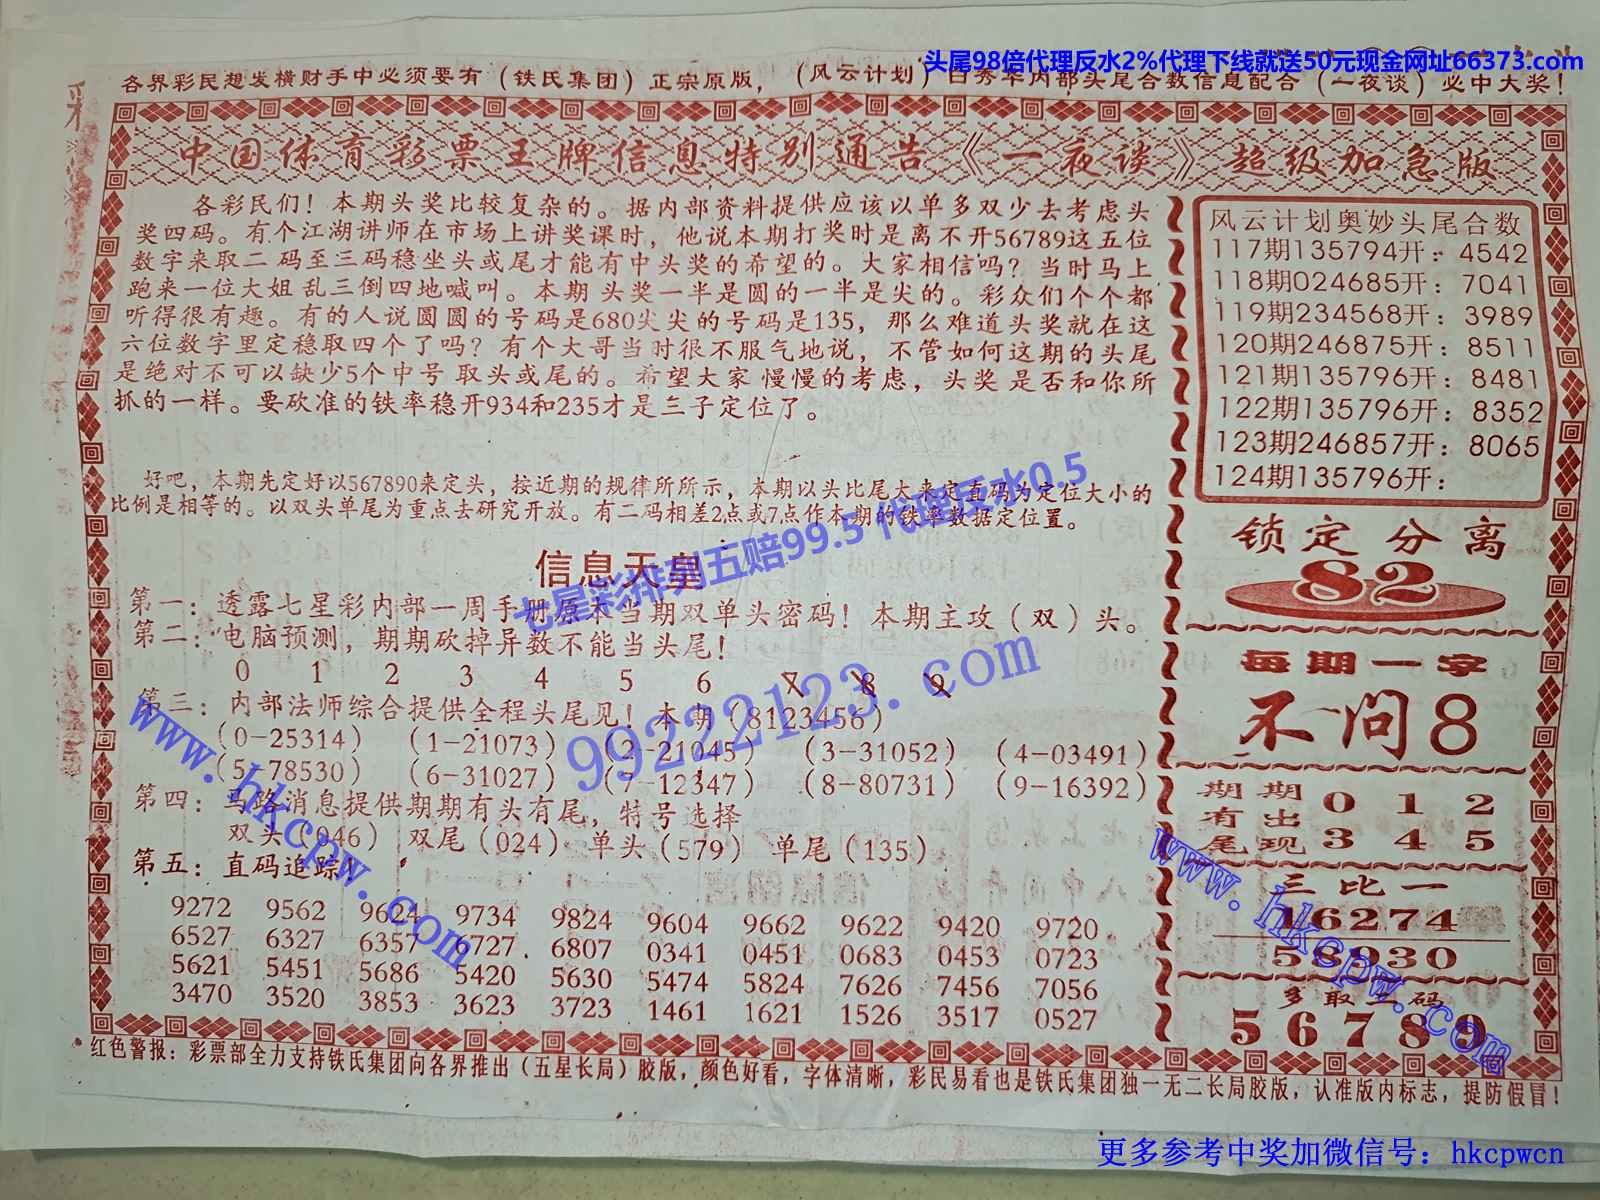 头尾98倍代理反水2%代理下线就送50元现金网址66373.com
各界彩民想发横财手中必须要有（铁氏集团）正宗原版，（风云计划）白秀华内部头尾合数信息配合（一夜谈）必中大奖！
中国体育彩票王牌信息特别通告《一夜谈》超级加急版
各彩民们！本期头奖比较复杂的。据内部资料提供应该以单多双少去考虑头
奖四码。有个江湖讲师在市场上讲奖课时，他说本期打奖时是离不开56789这五位
数字来取二码至三码稳坐头或尾才能有中头奖的希望的。大家相信吗？当时马上
跑来一位大姐乱三倒四地喊叫。本期头奖一半是圆的一半是尖的。彩众们个个都
听得很有趣。有的人说圆圆的号码是680尖尖的号码是135，那么难道头奖就在这
六位数字里定稳取四个了吗？有个大哥当时很不服气地说，不管如何这期的头尾
是绝对不可以缺少5个中号取头或尾的。希望大家慢慢的考虑，头奖是否和你所
抓的一样。要砍准的铁率稳开934和235才是三子定位了。
好吧，本期先定好以567890来定头，按近期的规律所所示，本期以头比尾大来定直码为定位大小的
比例是相等的。以双头单尾为重点去研究开放。有二码相差2点或7点作本期的铁率数据定位置。
七星彩排列五赔99.5 代理反水0.5
信息天皇
第一：透露七星彩内部一周手册原本当期双单头密码！本期主攻（双）头。
第二：电脑预测，期期砍掉异数不能当头尾！
0 1 2 3 4 5 6 7 8 9
第三：内部法师综合提供全程头尾见！本期（8123456）
（0-25314） （1-21073） （2-21045） （3-31052） （4-03491）
（5-78530） （6-31027） （7-12347） （8-80731） （9-16392）
第四：马路消息提供期期有头有尾，特号选择
双头（046） 双尾（024） 单头（579） 单尾（135）
第五：直码追踪！
9272 9562 9624 9734 9824 9604 9662 9622 9420 9720
6527 6327 6357 6727 6807 0341 0451 0683 0453 0723
5621 5451 5686 5420 5630 5474 5824 7626 7456 7056
3470 3520 3853 3623 3723 1461 1621 1526 3517 0527
www.hkcpw.com
99222123.com
风云计划奥妙头尾合数
117期135794开：4542
118期024685开：7041
119期234568开：3989
120期246875开：8511
121期135796开：8481
122期135796开：8352
123期246857开：8065
124期135796开：
锁定分离
82
每期一字
不问8
期期 0 1 2
有出
尾现 3 4 5
三比一
16274
58930
多取二码
5 6 7 8 9
www.hkcpw.com
红色警报：彩票部全力支持铁氏集团向各界推出（五星长局）胶版，颜色好看，字体清晰，彩民易看也是铁氏集团独一无二长局胶版，认准版内标志，提防假冒！
更多参考中奖加微信号：hkcpwcn